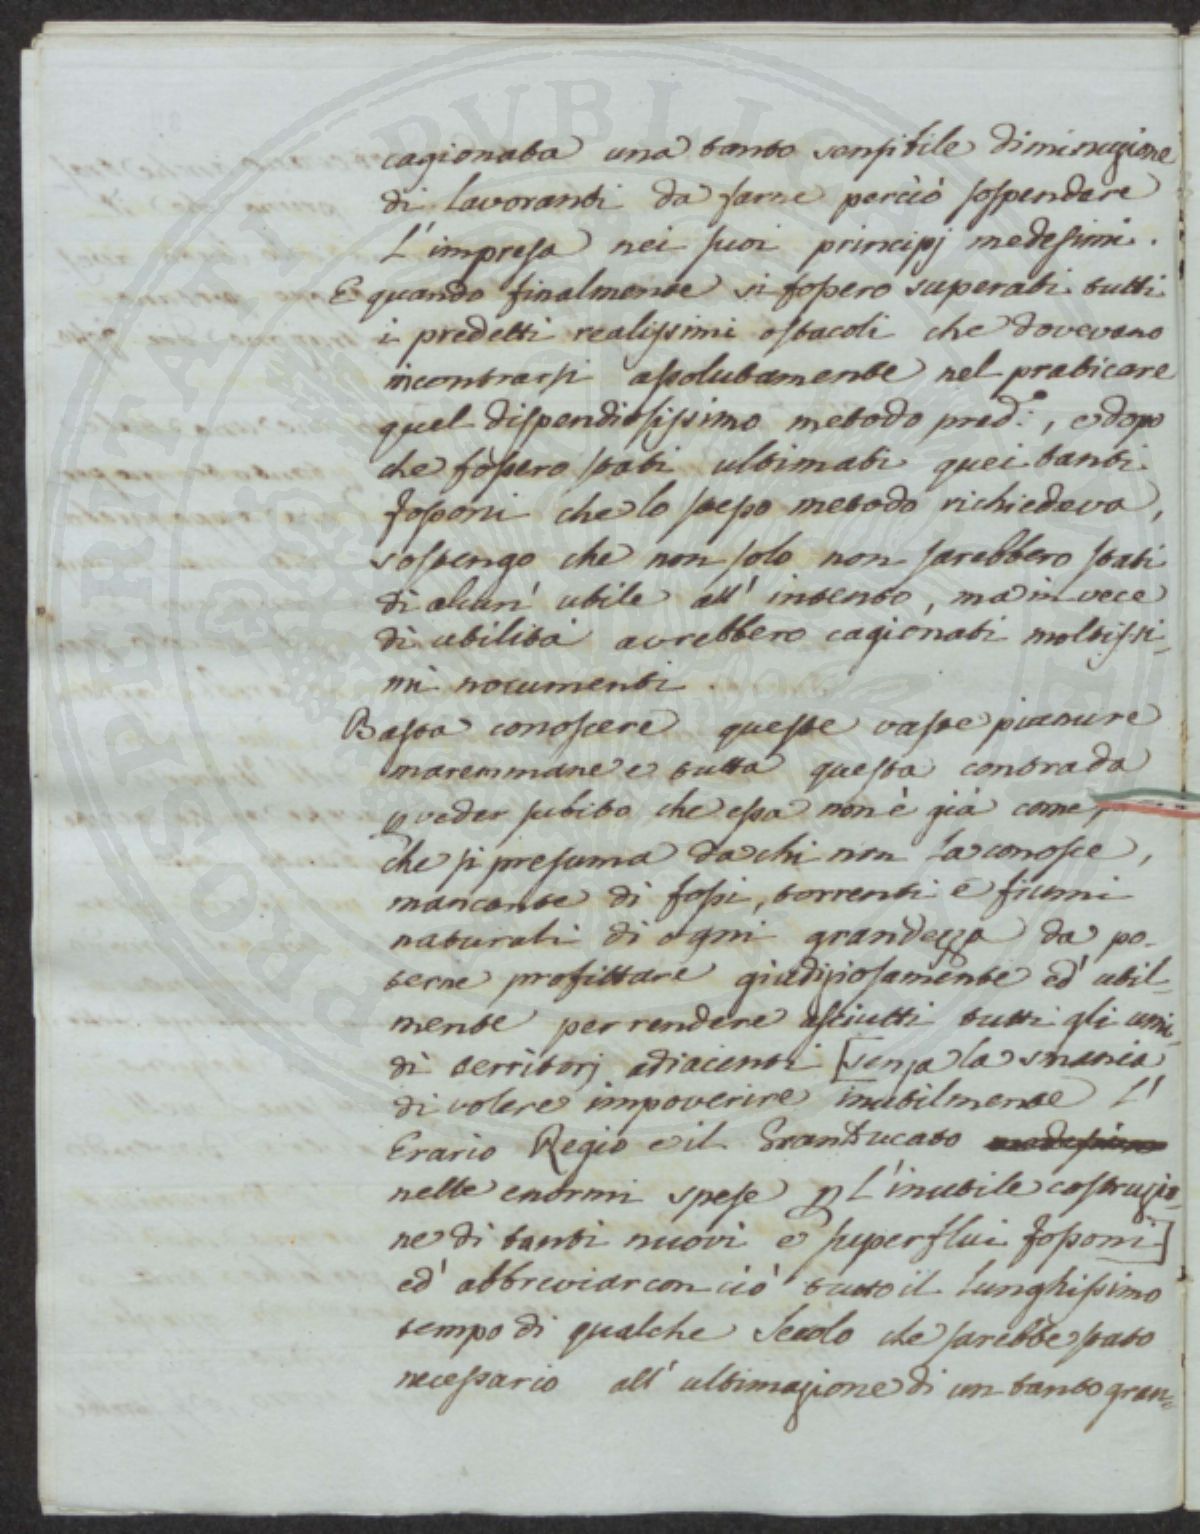 cagionata una tanto sensibile diminuzione
di lavoranti da farne perciò sospendere
l'impresa nei suoi principj medesimi.
E quando finalmente si fossero superati tutti
i predetti realissimi ostacoli che dovevano
incontrarsi assolutamente nel praticare
quel dispendiosissimo metodo pred.º, e dopo
che fossero stati ultimati quei tanti
fossoni che lo stesso metodo richiedeva,
sostengo che non solo non sarebbero stati
di alcun' utile all' intento, ma in vece
di utilità avrebbero cagionati moltissi-
mi nocumenti.
Basta conoscere queste vaste pianure
maremmane e tutta questa contrada
p veder subito che essa non è già come,
che si presuma da chi non la conosce,
mancante di fossi, torrenti e fiumi
naturali di ogni grandezza da po-
terne profittare giudiziosamente ed' util-
mente per rendere asciutti tutti gli umi-
di territorj adiacenti [senza la smania
di volere impoverire inutilmente l'
Erario Regio e il GranDucato
nelle enormi spese p l'inutile costruzio-
ne di tanti nuovi e superflui fossoni]
ed' abbreviar con ciò tutto il lunghissimo
tempo di qualche Secolo che sarebbe stato
necessario all' ultimazione di un tanto gran-
PROSPERITATI PUBLICAE